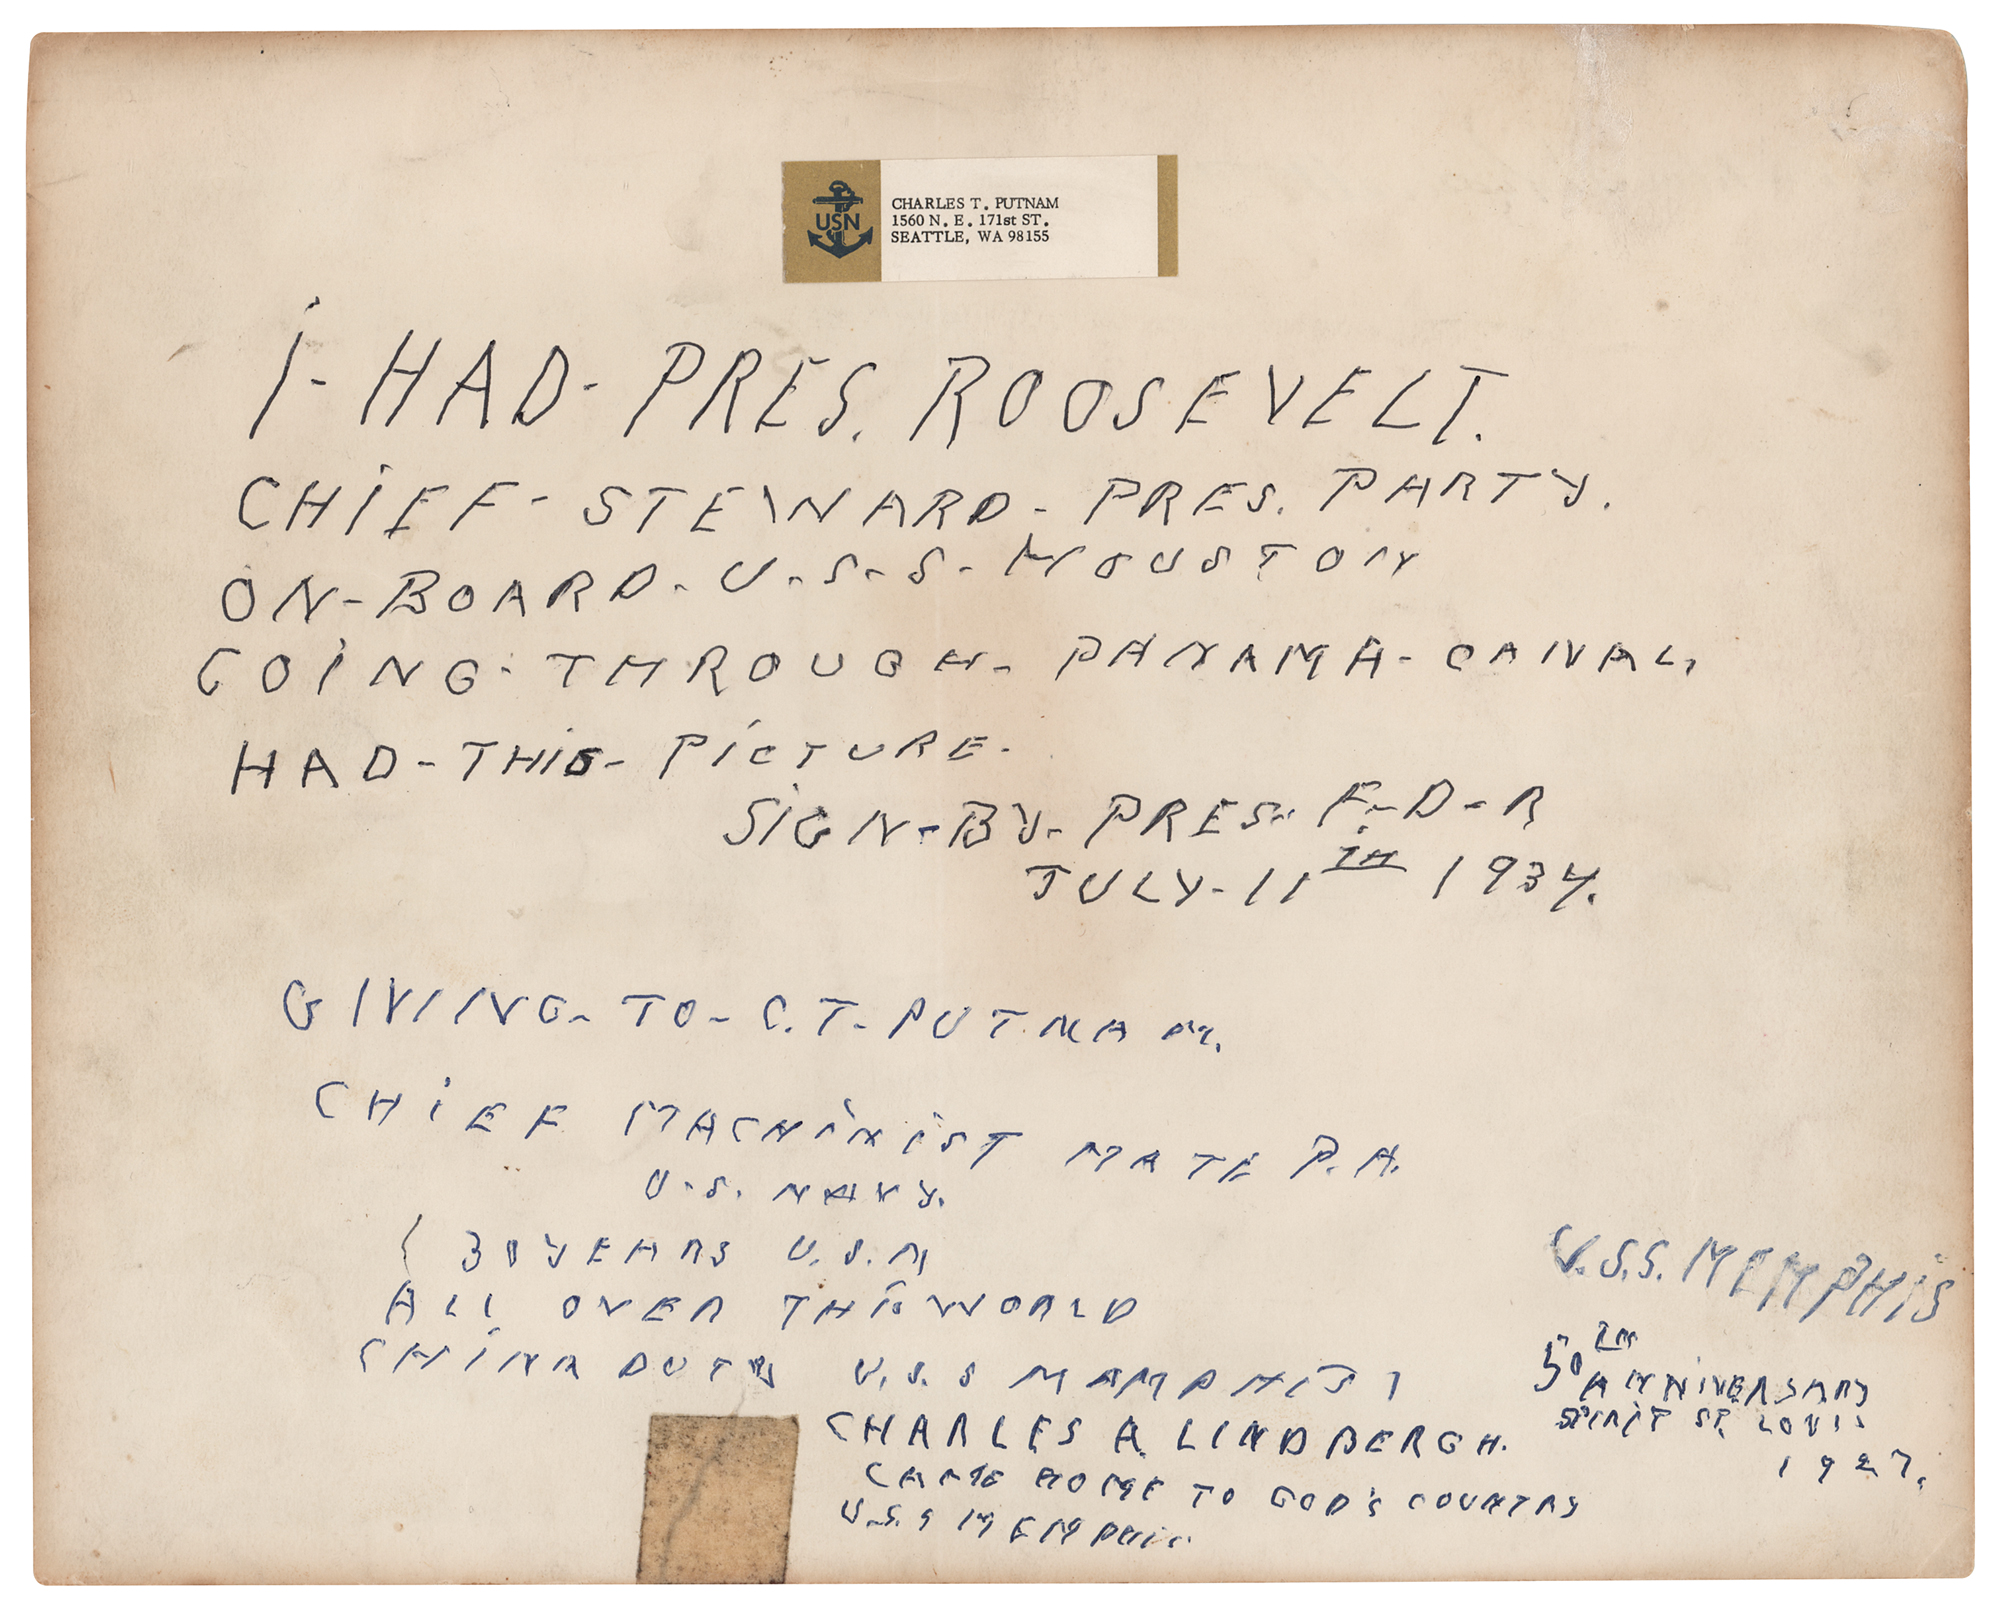 USN
CHARLES T. PUTNAM
1560 N. E. 171st ST.
SEATTLE, WA 98155
I-HAD-PRES. ROOSEVELT.
CHIEF-STEWARD-PRES. PARTY.
ON-BOARD-U-S-S-HOUSTON
GOING-THROUGH-PANAMA-CANAL,
HAD-THIS-PICTURE-
SIGN-BY-PRES. F-D-R
JULY-11TH 1934.
GIVING-TO-C.T-PUTNAM.
CHIEF MACHINIST MATE P.A.
U.S. NAVY.
YEARS U.S.N
ALL OVER THE WORLD
CHINA DUTY U.S.S MAMPHIS
CHARLES A. LINDBERGH.
CAME HOME TO GOD'S COUNTRY
U.S.S MEMPHIS
U.S.S. MEMPHIS
50TH
ANNIVERSARY
SPIRIT ST. LOUIS
1927.